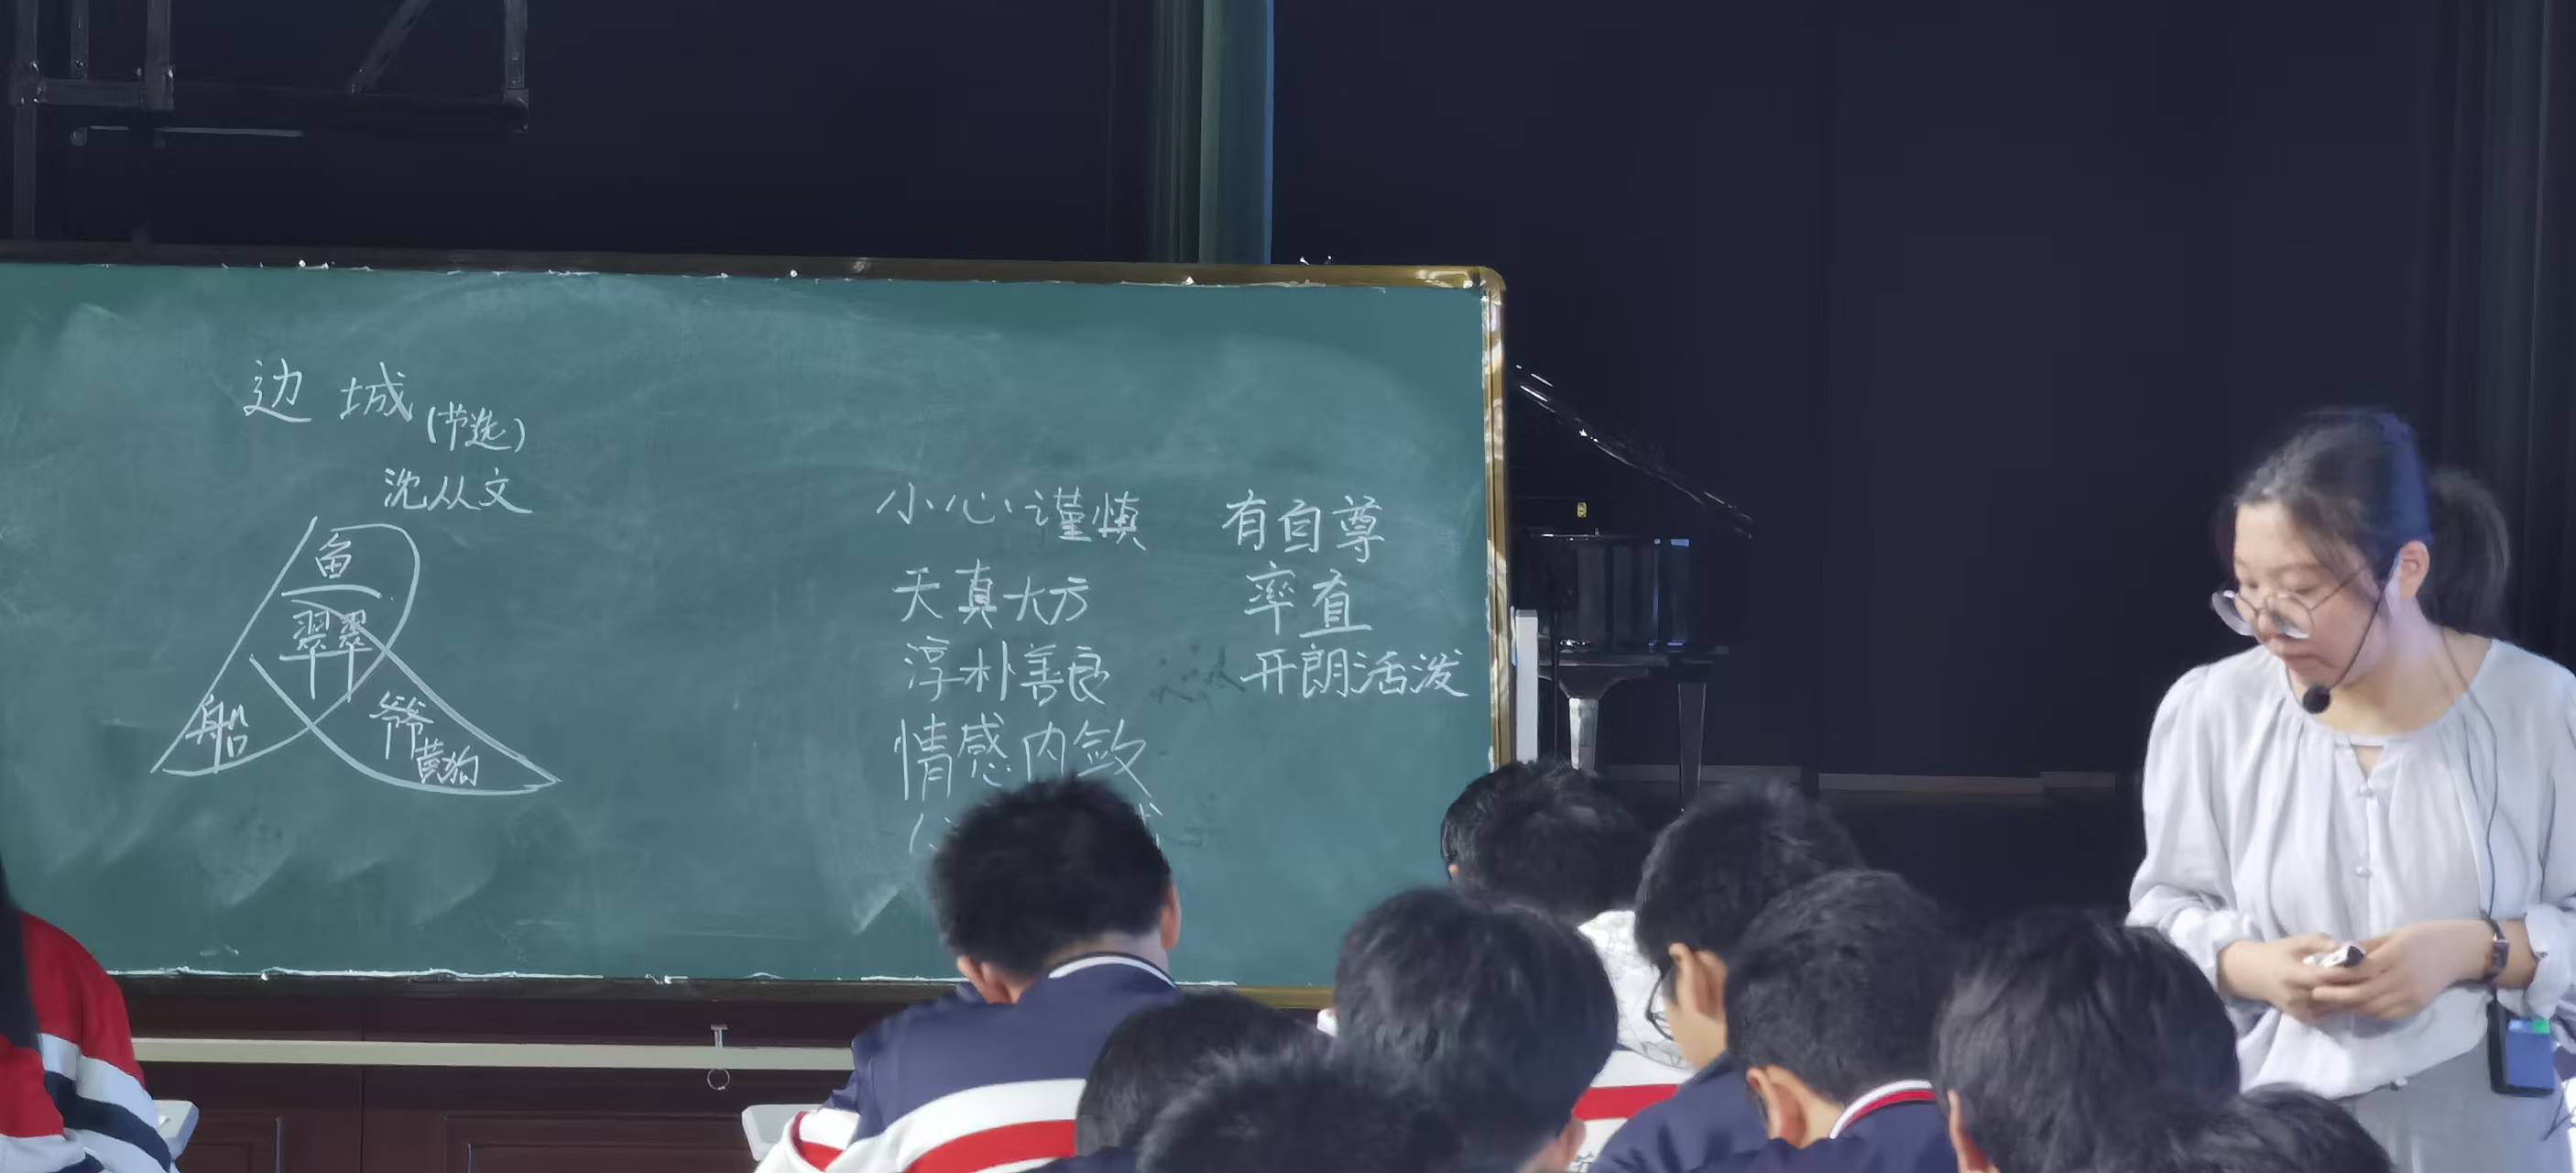 边城
(节选)
沈从文
鱼
翠翠
船
爷爷
黄狗
小心谨慎
天真大方
淳朴善良
情感内敛
有自尊
率直
开朗活泼